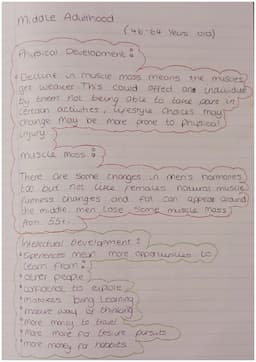 Middle Adulthood
(46-64 Years old)
Physical Development:
• Decline in muscle mass means the muscles
get weaker This could affect an individual
by them not being able to take part in
certain activities, lifestyle choices may
change may be more prone to physical
injury
muscle mass:
There are some changes in men's hormones
too but not like females natural muscle
fat can appear around
the middle men lose some muscle mass
55+.
Intellectual Development:
• Experiences mean more opportunities to
learn from:
• other people
• confident to explore
• mistakes bring learning
• mature way of thinking
• more money to travel
• more for leisure pursuits
• more money for hobbies